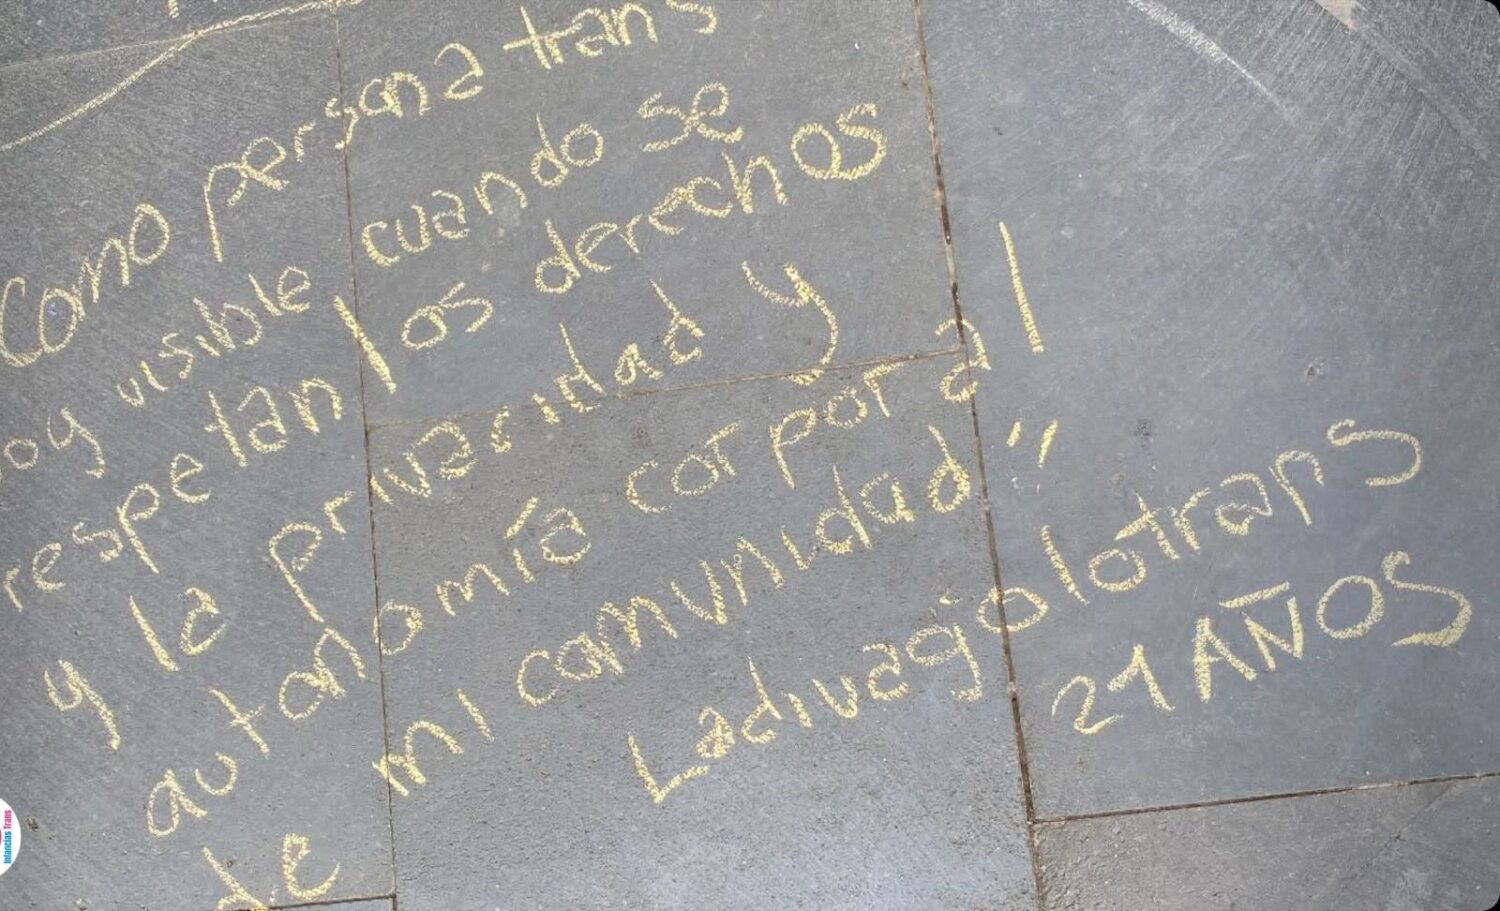 Como persona trans
oy visible cuando se
respetan los derechos
y la privasidad y
autonomía corporal
de mi comunidad"
Ladivagjolotrans
21 AÑOS
Infancias Trans